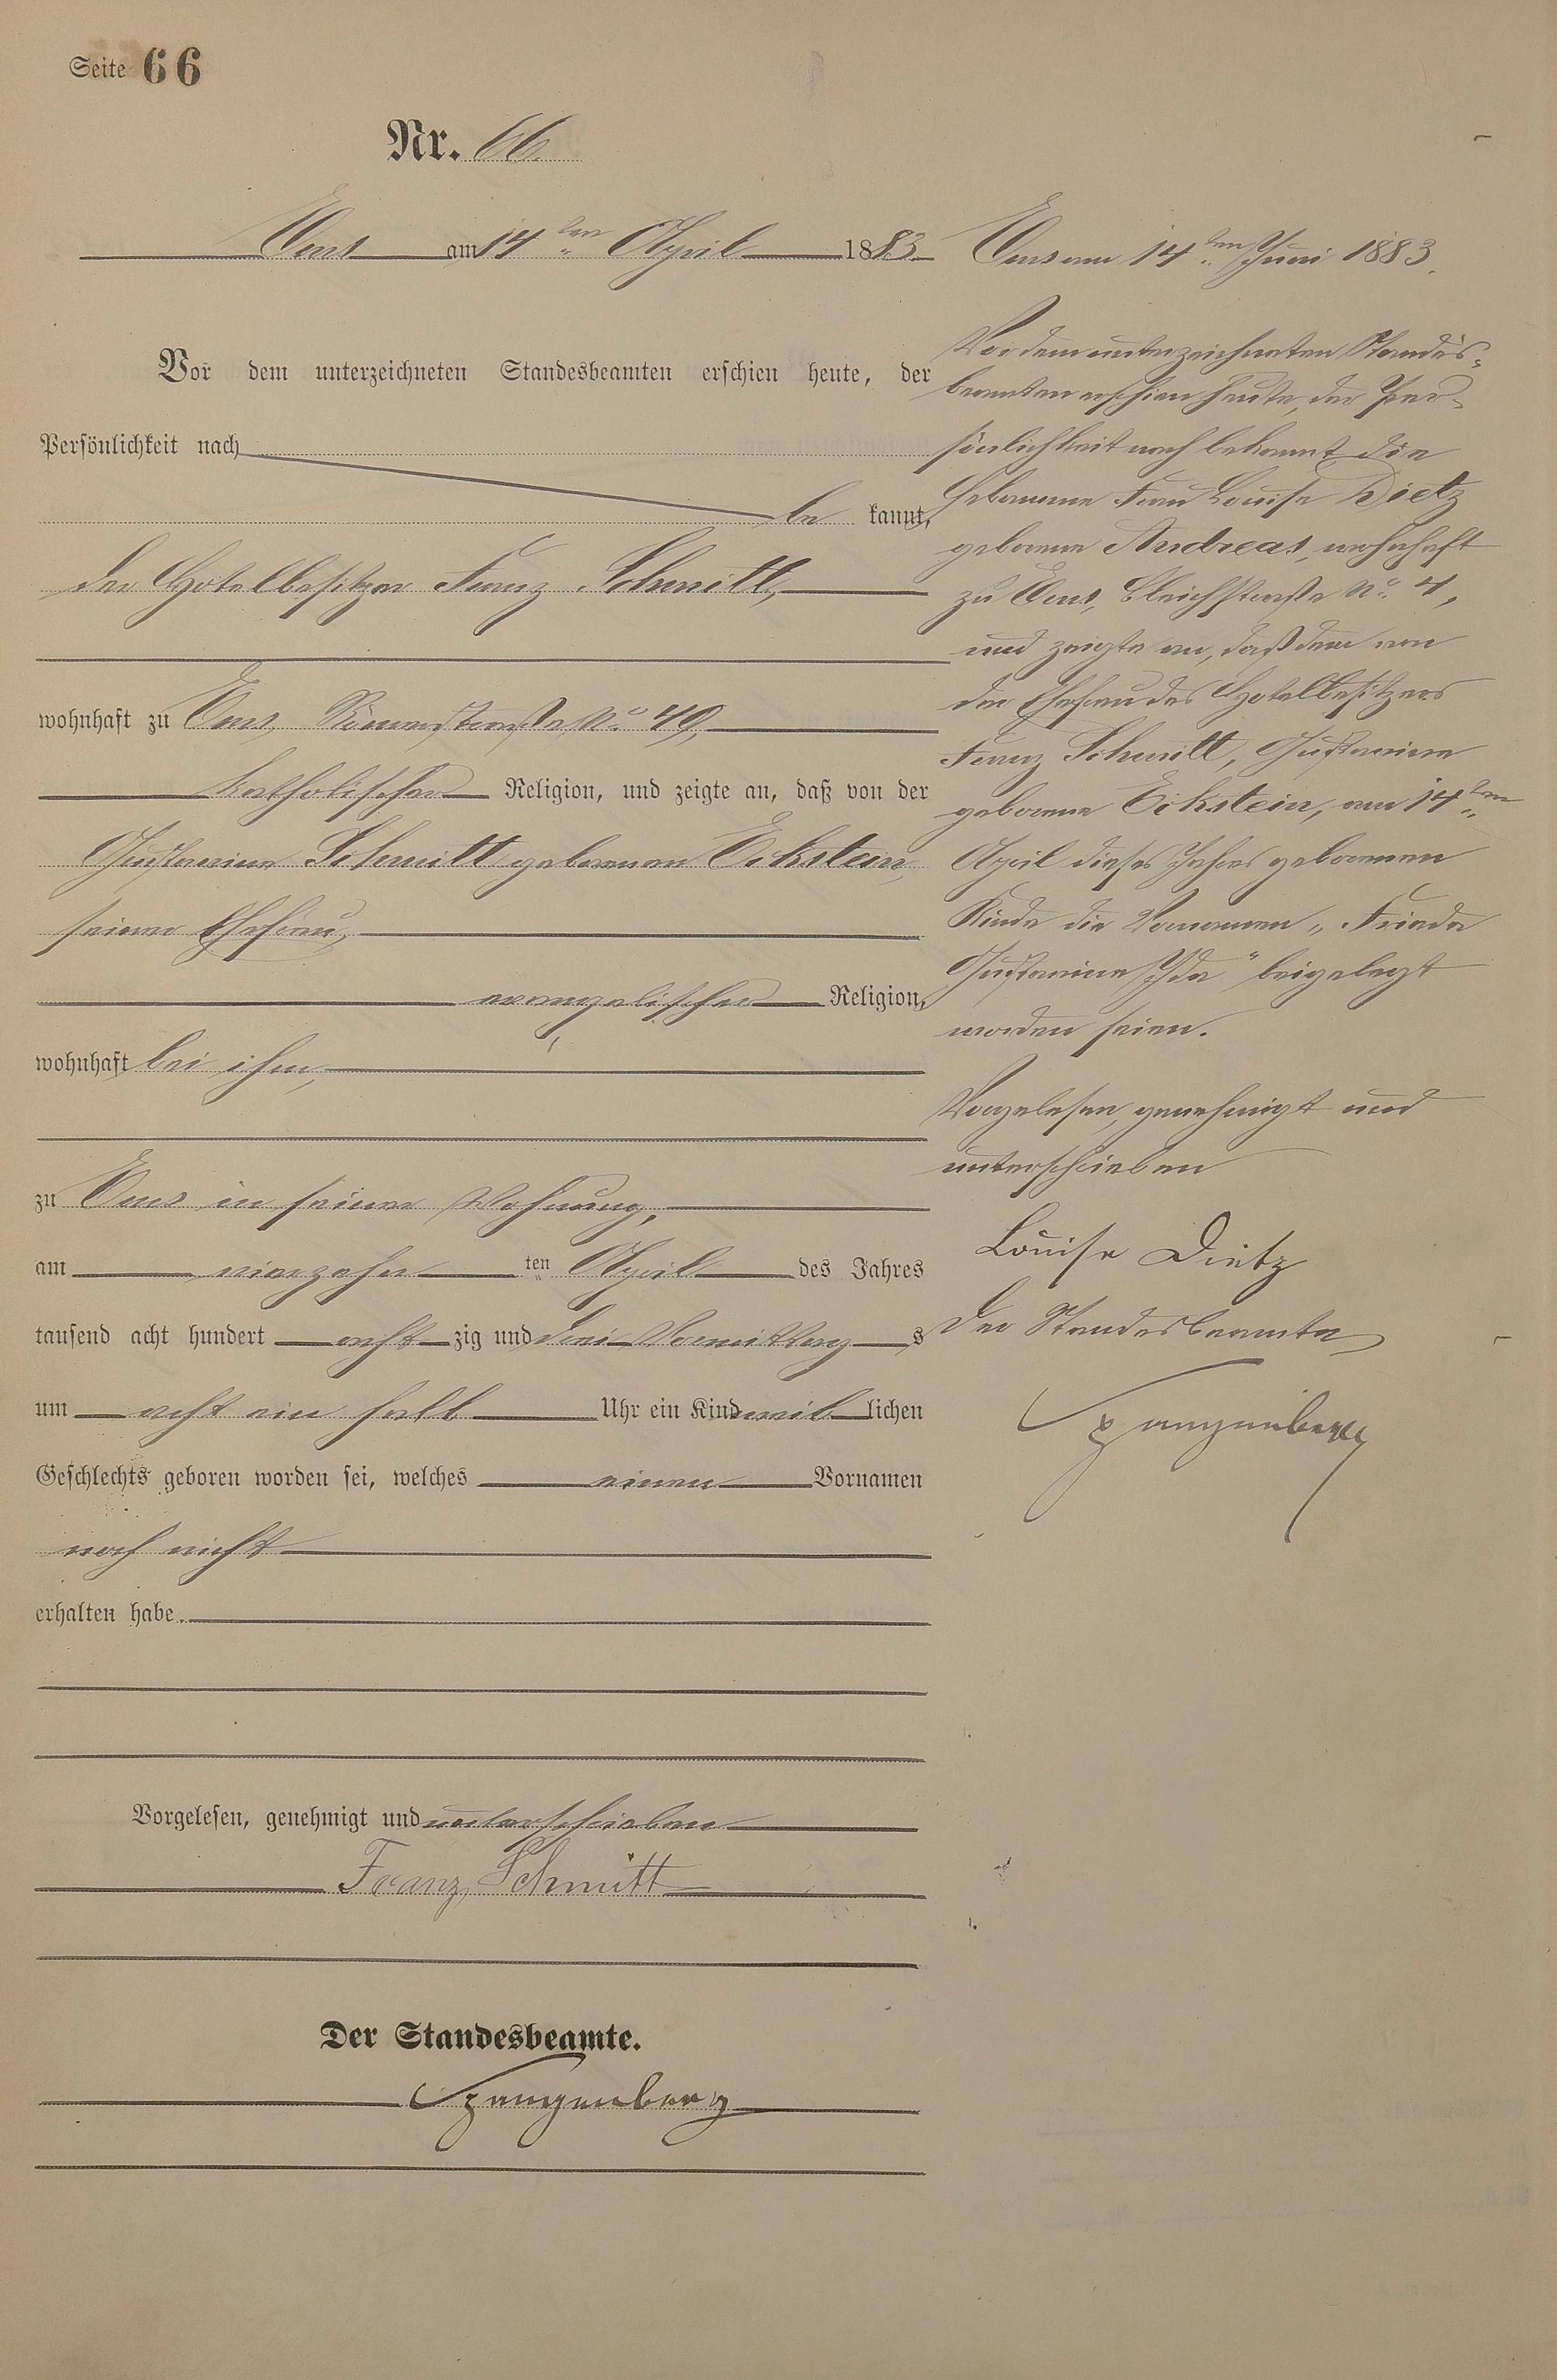 Seite 66
Nr. 66.
Ems am 14ten April 1883
Vor dem unterzeichneten Standesbeamten erschien heute, der
Persönlichkeit nach
be kannt,
der Hotelbesitzer Franz Schmitt,
wohnhaft zu Ems, Römerstraße No. 49,
katholischer Religion, und zeigte an, daß von der
Gustavine Schmitt geborenen Eckstein,
seiner Ehefrau,
evangelischer Religion,
wohnhaft bei ihm,
zu Ems in seiner Wohnung,
am vierzehn ten April des Jahres
tausend acht hundert acht zig und drei Vormittag s
um acht ein halb Uhr ein Kind weib lichen
Geschlechts geboren worden sei, welches einen Vornamen
noch nicht
erhalten habe.
Vorgelesen, genehmigt und unterschrieben
Franz Schmitt
Der Standesbeamte.
Spangenberg
Ems am 14ten Juni 1883.
Vor dem unterzeichneten Standes-
beamten erschien heute, der Per-
sönlichkeit nach bekannt, die
Hebamme Frau Louise Dietz
geborene Andreas, wohnhaft
zu Ems, Bleichstraße No. 4,
und zeigte an, daß dem von
der Ehefrau des Hotelbesitzers
Franz Schmitt, Gustavine
geborene Eckstein, am 14ten
April dieses Jahres geborenen
Kinde die Vornamen „Frieda
Gustavine Ida" beigelegt
worden seien.
Vorgelesen, genehmigt und
unterschrieben
Louise Dietz
Der Standesbeamte
Spangenberg